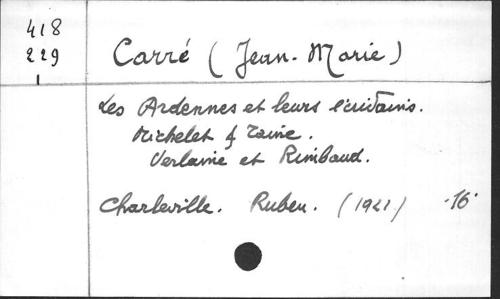 418
229
1
Carré (Jean-Marie)
Les Ardennes et leurs écrivains.
Michelet & Taine.
Verlaine et Rimbaud.
Charleville. Ruben. (1921) -16°